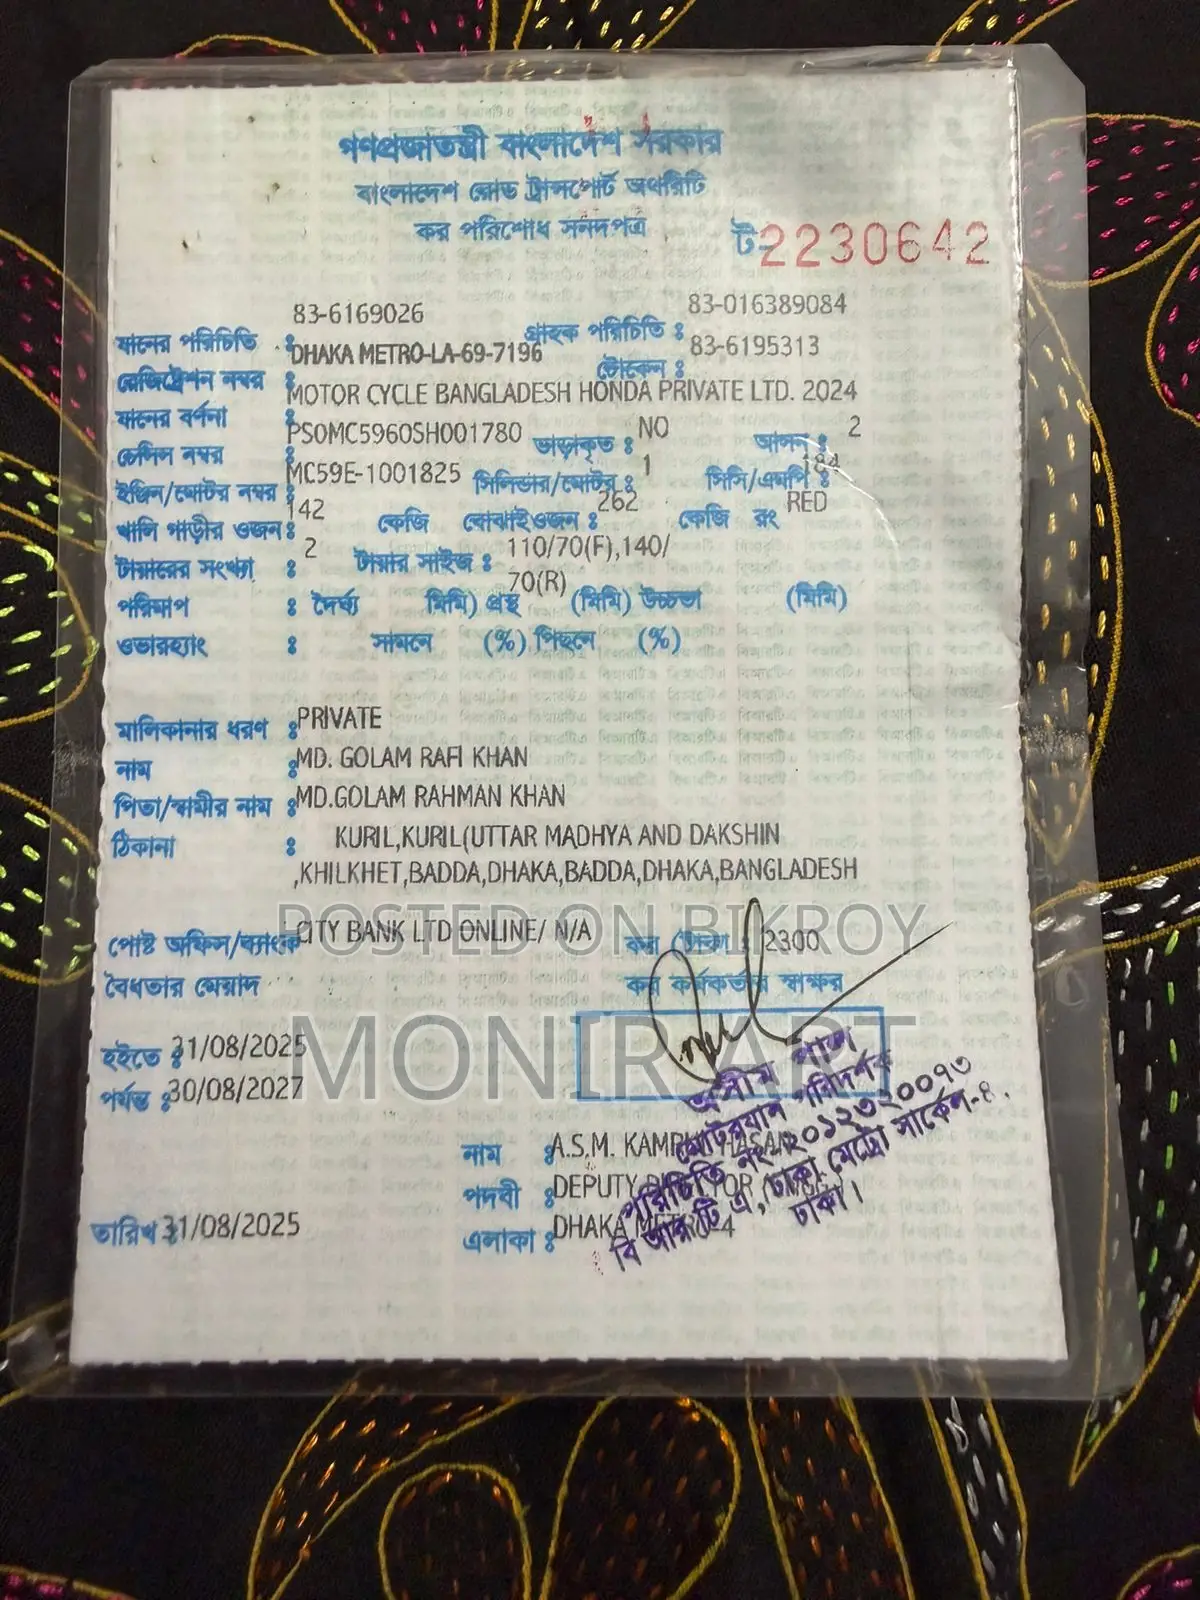 গণপ্রজাতন্ত্রী বাংলাদেশ সরকার
বাংলাদেশ রোড ট্রান্সপোর্ট অথরিটি
কর পরিশোধ সনদপত্র
ট-2230642
যানের পরিচিতি : 83-6169026 গ্রাহক পরিচিতি : 83-016389084
রেজিষ্ট্রেশন নম্বর : DHAKA METRO-LA-69-7196 টোকেন : 83-6195313
যানের বর্ণনা : MOTOR CYCLE BANGLADESH HONDA PRIVATE LTD. 2024
চেসিস নম্বর : PS0MC5960SH001780 ভাড়াকৃত : NO আসন : 2
ইঞ্জিন/মোটর নম্বর : MC59E-1001825 সিলিন্ডার/মোটর : 1 সিসি/এমপি : 184
খালি গাড়ীর ওজন : 142 কেজি বোঝাইওজন : 262 কেজি রং RED
টায়ারের সংখ্যা : 2 টায়ার সাইজ : 110/70(F),140/
70(R)
পরিমাপ : দৈর্ঘ্য মিমি) প্রস্থ (মিমি) উচ্চতা (মিমি)
ওভারহ্যাং : সামনে (%) পিছনে (%)
মালিকানার ধরণ : PRIVATE
নাম : MD. GOLAM RAFI KHAN
পিতা/স্বামীর নাম : MD.GOLAM RAHMAN KHAN
ঠিকানা : KURIL,KURIL(UTTAR MADHYA AND DAKSHIN
,KHILKHET,BADDA,DHAKA,BADDA,DHAKA,BANGLADESH
POSTED ON BIKROY
পোষ্ট অফিস/ব্যাংক CITY BANK LTD ONLINE/ N/A কর (টাকা : 2300
বৈধতার মেয়াদ কর কর্মকর্তার স্বাক্ষর
MONIR ART
হইতে : 31/08/2025
পর্যন্ত : 30/08/2027
অসীম পাল
মোটরযান পরিদর্শক
পরিচিতি নং-২০১২৩২০০৭৩
বি আর টি এ, ঢাকা মেট্রো সার্কেল-৪.
ঢাকা।
নাম : A.S.M. KAMRUL HASAN
পদবী : DEPUTY DIRECTOR
তারিখ : 31/08/2025 এলাকা : DHAKA METRO-4